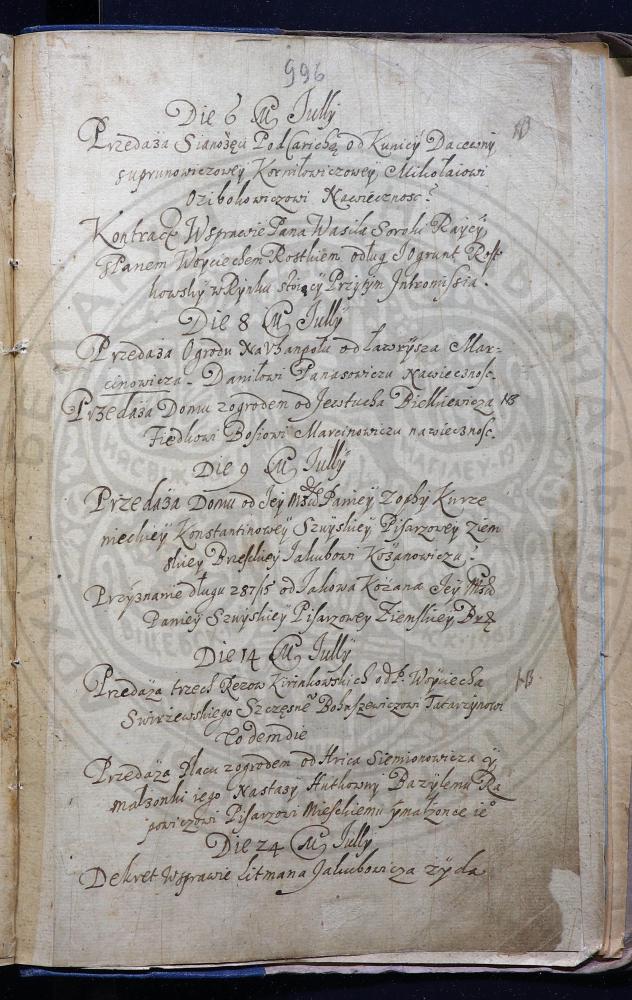 996
Die 6 M Jully
Przedaża Sianożęci Pod od Kunicy
Suprunowiczowey Korniłowiczowey Mikołaiowi
Dzibohowiczowi Nawieczność
Kontract Wsprawie Pana Wasila Soroki Raycy
sPanem Woyciechem Rostkiem odług Jogrunt Rost
kowsky wRynku stoiący Przytym Intromissia.
Die 8 M Jully
Przedaża Ogrodu Na od Ławrysza Mar-
cinowicza - Daniłowi Panasowiczu nawieczność.
Przedaża Domu zogrodem od Jewtucha Bickiewicza
Fiedkowi Bosiowi Marcinowiczu nawieczność.
Die 9 M Jully
Przedaża Domu od Jey Mści Paniey Zophy Kurze
nieckiey Konstantinowey Szuyskiey Pisarzowey Ziem
skiey Brzeskiey Jakubowi Kożanowiczu
Przyznanie długu 287/15 od Jakowa Kożana Jey Mści
Paniey Szuyskiey Pisarzowey Ziemskiey Brz
Die 14 M Jully
Przedaża trzech Rezow Kirinkowskich od P. Woyciecha
Swirzewskiego Szczęsne Bohuszewiczowi Tatarzynowi
Eodem die
Przedaża Placu zogrodem od Hrica Siemionowicza y
Małżonki iego Nastazy Hutkowny Bazylemu Ra
powiczowi Pisarzowi Mieskiemu ymałżonce ieo
Die 24 M Jully
Dekret Wsprawie Litmana Jakubowicza żyda